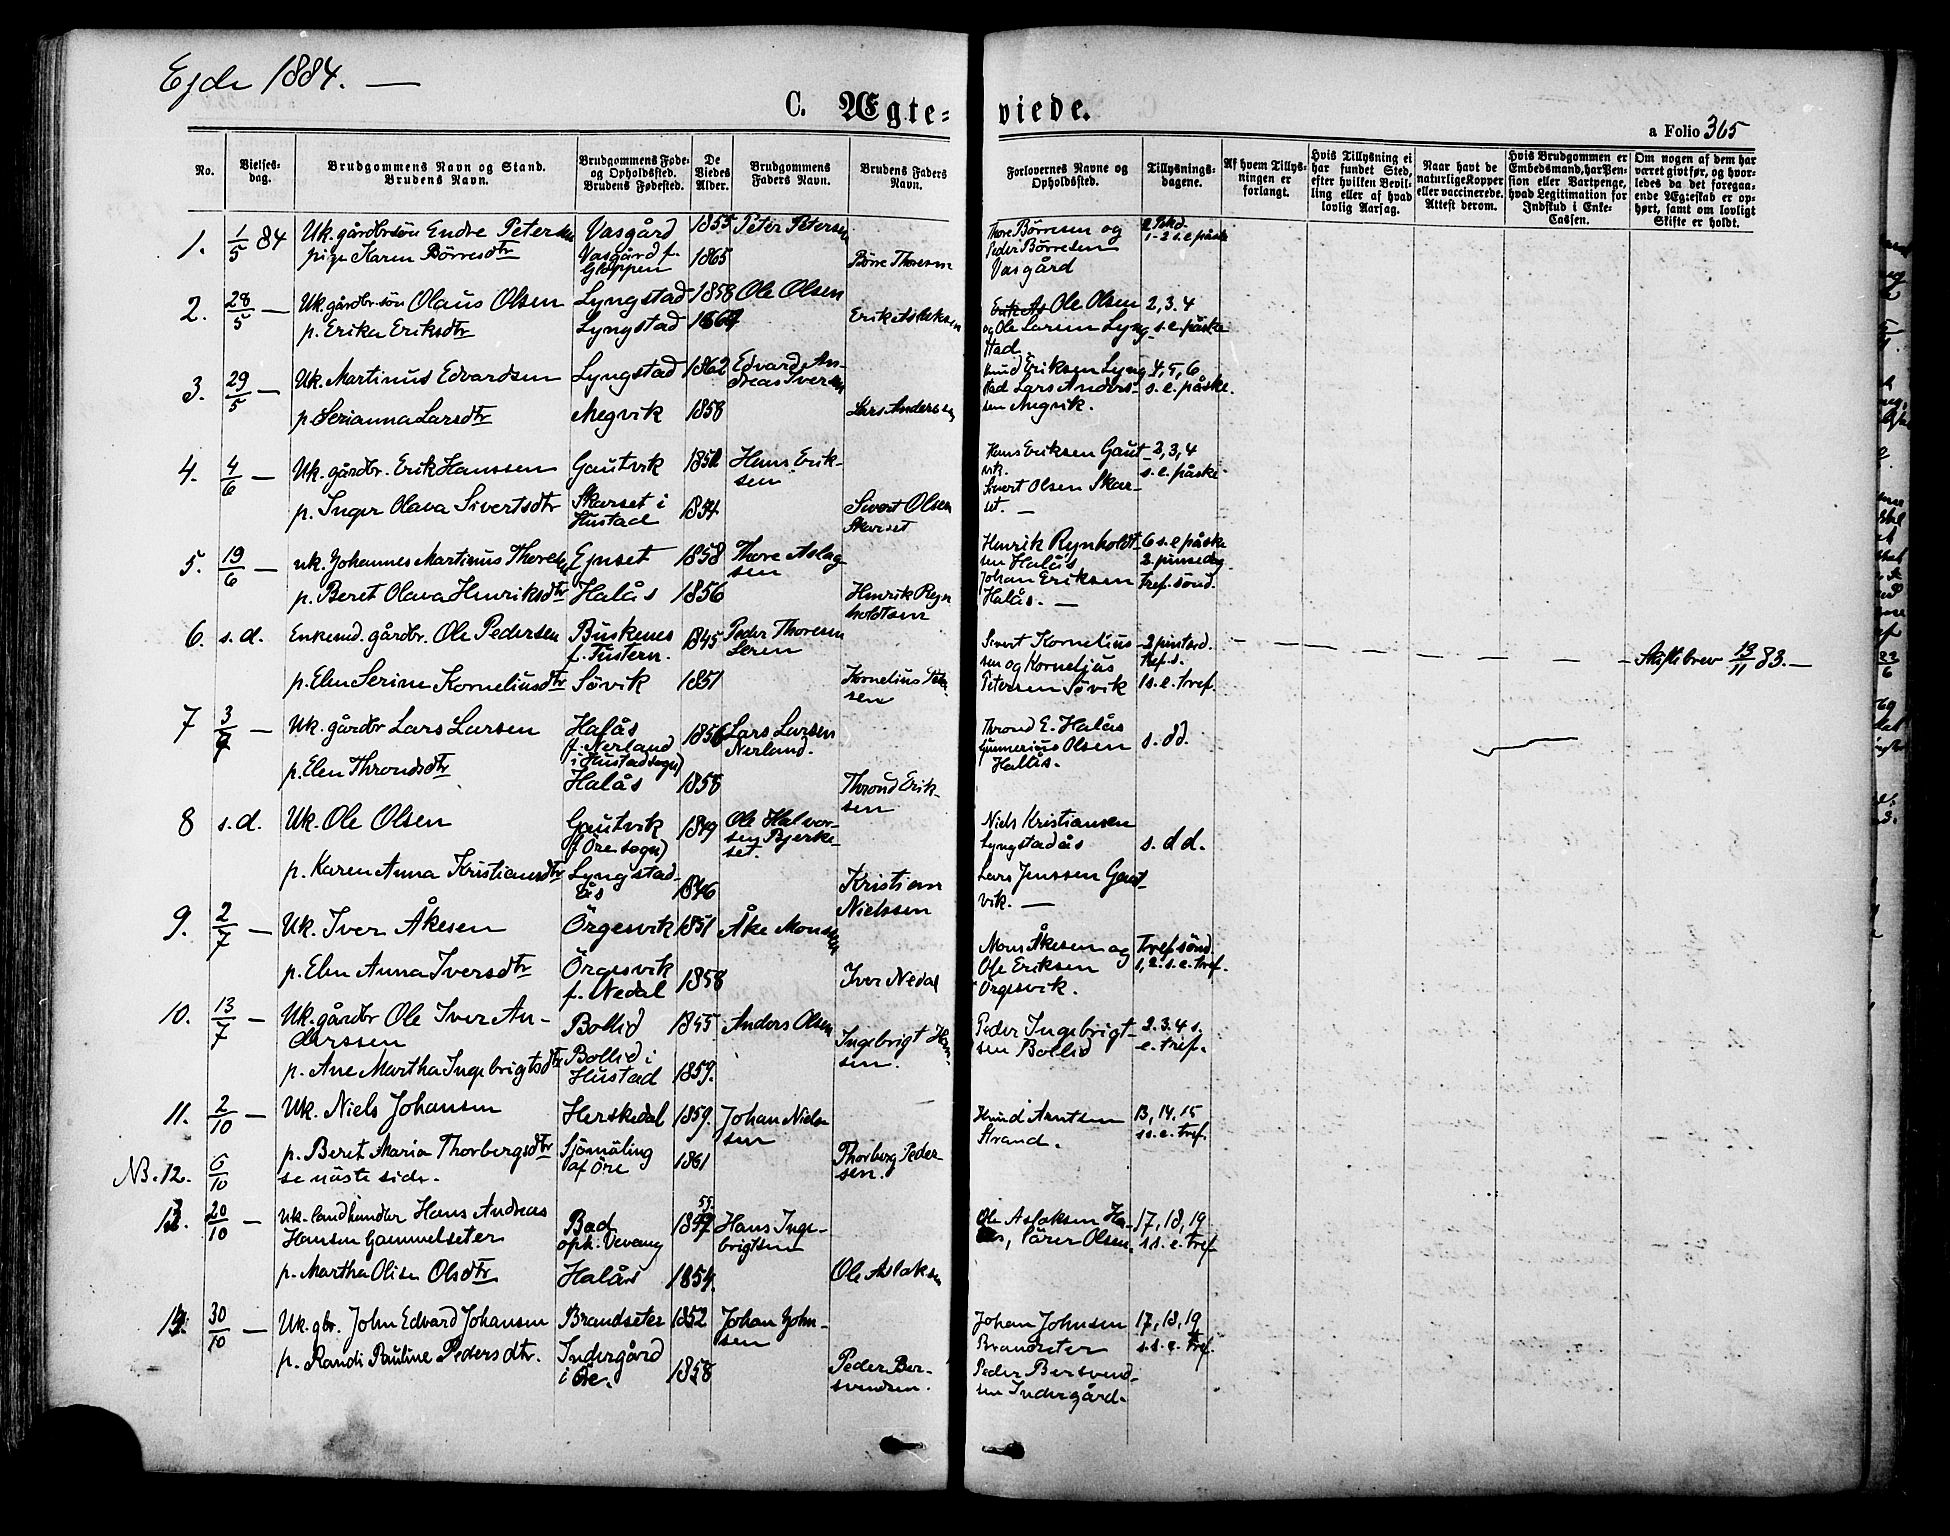 Ejde 1884. —
C. Ægte= viede.
a Folio 365
No.
Vielses-
dag.
Brudgommens Navn og Stand.
Brudens Navn.
Brudgommens Føde-
og Opholdssted.
Brudens Fødested.
De
Viedes
Alder.
Brudgommens
Faders Navn.
Brudens Faders
Navn.
Forlovernes Navne og
Opholdssted.
Tillysnings-
dagene.
Af hvem Tillys-
ningen er
forlangt.
Hvis Tillysning ei
har fundet Sted,
efter hvilken Bevil-
ling eller af hvad
lovlig Aarsag.
Naar havt de
naturlige Kopper
eller vaccinerede.
Attest derom.
Hvis Brudgommen er
Embedsmand, har Pen-
sion eller Vartpenge,
hvad Legitimation for
Indskud i Enke-
Cassen.
Om nogen af dem har
været gift før, og hvor-
ledes da det foregaa-
ende Ægteskab er op-
hørt, samt om lovligt
Skifte er holdt.
1. 1/5 84 Uk. gårdbrsön Endre Petersen Vasgård 1855 Peter Petersen
pige Karen Börresdtr Vasgård f. Gloppen 1865 Börre Thoresen
Thore Börresen og
Peder Börresen
Vasgård
1-2 s.e. påske
2. 28/5 — Uk. gårdbr.sön Olaus Olsen Lyngstad 1858 Ole Olsen
p. Erika Eriksdtr Lyngstad Erik Aslaksen
Ole Olsen 2, 3, 4
og Ole Larsen Lyng- s.e. påske
stad
3. 29/5 — Uk. Martinus Edvardsen Lyngstad 1862 Edvard An-
dreas Iversen
p. Serianna Larsdtr Megvik 1858 Lars Andersen
Knud Eriksen Lyng 4, 5, 6
stad Lars Anders- s.e. påske.
sen Megvik.
4. 4/6 — Uk. gårdbr. Erik Hanssen Gautvik Hans Erik-
sen
p. Inger Olava Sivertsdtr Skarset i
Hustad 1854 Sivert Olsen
Skarset
Hans Eriksen Gaut- 2, 3, 4
vik. s.e. påske
Sivert Olsen Skar-
set. —
5. 19/6 — uk. Johannes Martinus Thoresen Ejnset 1858 Thore Aslag
sen
p. Beret Olava Henriksdtr Halås 1856 Henrik Reyn
holdtsen
Henrik Reynholdt- 6 s.e påske
sen Halås 2. pinsedag
Johan Eriksen tref. sönd.
Halås. —
6. s.d. Enkemd. gårdbr. Ole Pedersen Buskenes
f. Tustern. 1845 Peder Thoresen
p. Elen Serine Korneliusdtr Sövik 1851 Kornelius Peter
sen
Sivert Kornelius- 2 pinsed.
sen og Kornelius tref. s.
Petersen Sövik 1 s.e. tref.
Skiftebrev 13/11 83. —
7 3/7 — Uk. gårdbr Lars Larsen Halås
f. Nerland
i Hustad sogn) 1856 Lars Larsen
Nerland.
p. Elen Throndsdtr Halås 1858 Thrond Erik-
sen
Thrond E. Halås
Gunnerius Olsen s. dd.
Halås.
8 s.d. Uk. Ole Olsen Gautvik
(f. Öre sogn) 1849 Ole Halvor-
sen Bjerke-
set.
p. Karen Anna Kristiansdtr Lyngstad-
ås 1846 Kristian
Nielssen
Niels Kristiansen
Lyngstadås s. d d.
Lars Jenssen Gaut-
vik. —
9. 2/7 — Uk. Iver Åkesen Örgesvik 1851 Åke Monsen
p. Elen Anna Iversdtr Örgesvik
f. Nedal 1858 Iver Nedal
Mons Åkesen og tref sönd.
Ole Eriksen 1, 2. s.e. tref.
Örgesvik.
10. 13/7 — Uk. gårdbr Ole Iver An-
derssen Bollid 1855 Anders Olsen
p. Ane Martha Ingebrigtsdtr Bollid i
Hustad 1859. Ingebrigt Han
sen.
Peder Ingebrigt- 2. 3. 4 s.
sen Bollid e. tref.
11. 2/10 — Uk. Niels Johansen Herskedal 1859. Johan Niels
sen
p. Beret Maria Thorbergsdtr Sjömæling
af Öre 1861 Thorberg Peder
sen.
Knud Arntsen 13, 14. 15
Strand. s.s.e. tref.
NB. 12. 6/10 se näste side.
13. 20/10 — uk. landhandler Hans Andreas
Hansen Gammelseter Bad
oph. Vevang Hans Inge-
brigtsen
p. Martha Olisa Olsdtr Halås 1854. Ole Aslaksen
Ole Aslaksen Ha- 17, 18, 19
Olsen. s.s.e. tref
14. 30/10 — Uk. gbr. John Edvard Johansen Brandseter 1852 Johan John-
sen
p. Randi Pauline Pedersdtr. Indergård
i Öre. 1858 Peder Ber-
svendsen.
Johan Johnsen 17, 18, 19
Brandseter s.s.e. tref.
Peder Bersvend-
sen Indergård.